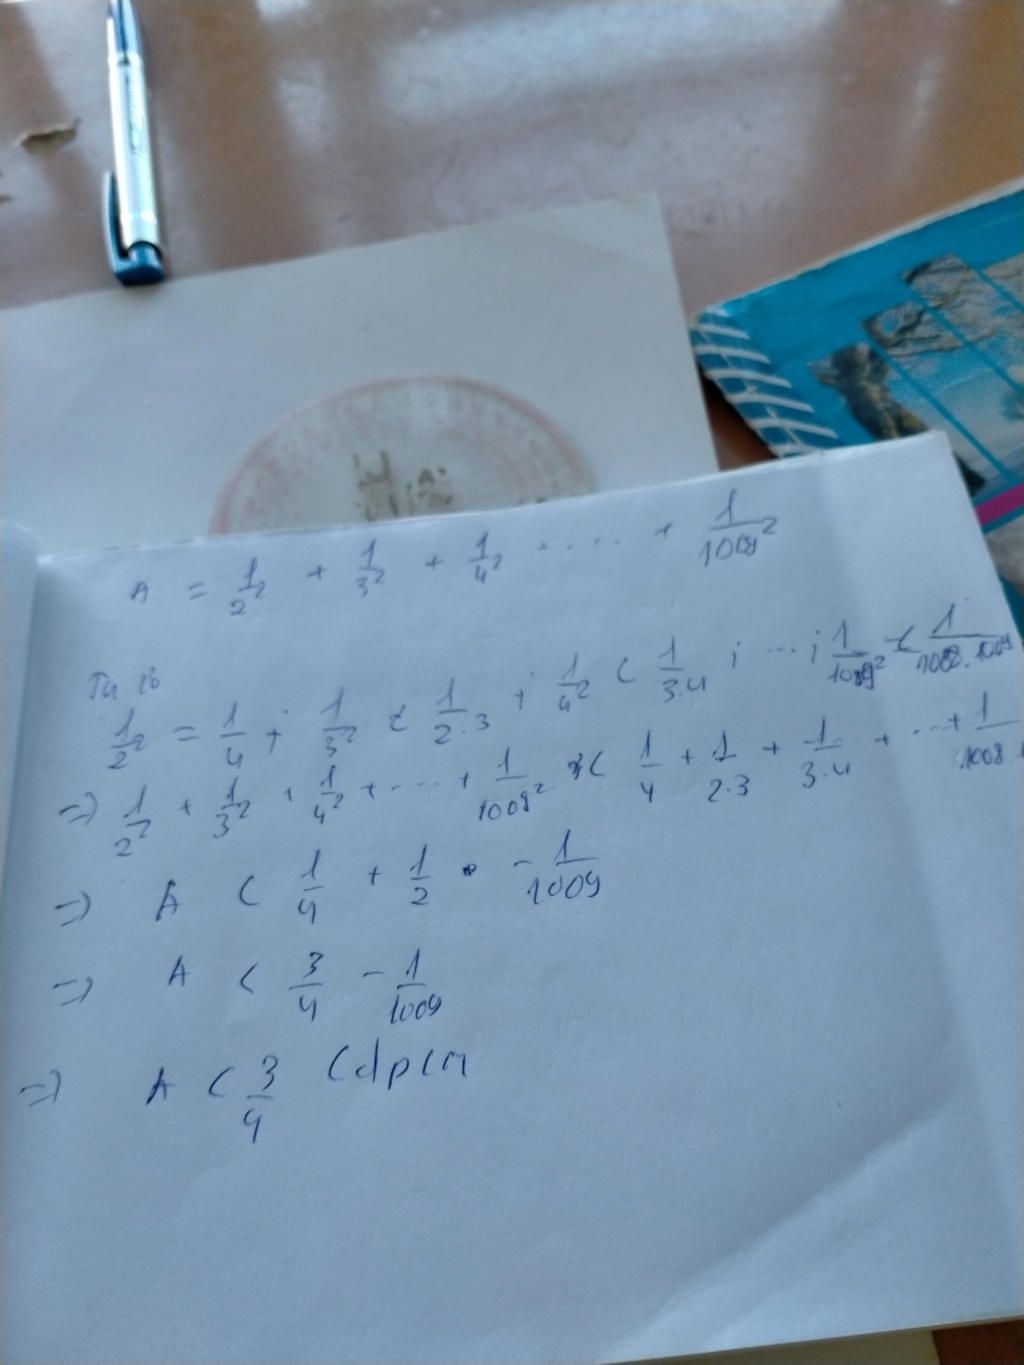 A = 1/2² + 1/3² + 1/4² ..... + 1/1009²
Ta có
1/2² = 1/4 ; 1/3² < 1/2.3 ; 1/4² < 1/3.4 ; ... ; 1/1009² < 1/1008.1009
=> 1/2² + 1/3² + 1/4² + .... + 1/1009² < 1/4 + 1/2.3 + 1/3.4 + ... + 1/1008.
=> A < 1/4 + 1/2 - 1/1009
=> A < 3/4 - 1/1009
=> A < 3/4 (dpcm